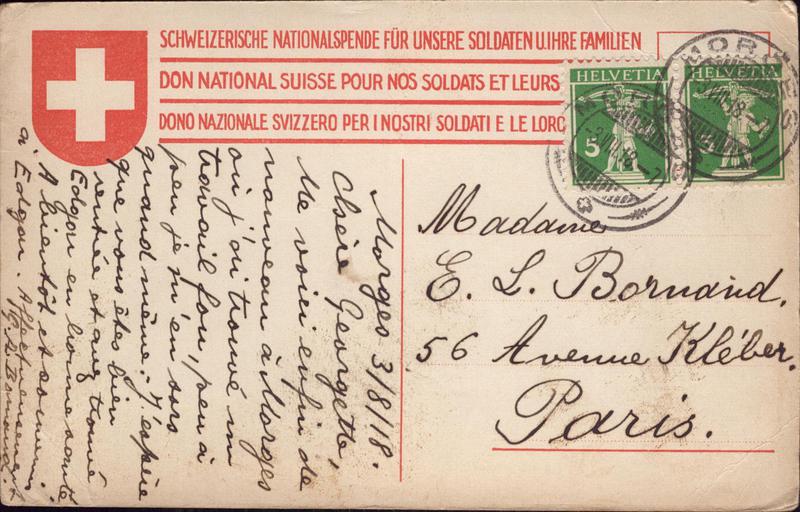 SCHWEIZERISCHE NATIONALSPENDE FÜR UNSERE SOLDATEN U. IHRE FAMILIEN
DON NATIONAL SUISSE POUR NOS SOLDATS ET LEURS
DONO NAZIONALE SVIZZERO PER I NOSTRI SOLDATI E LE LORO
HELVETIA
5
HELVETIA
MORGES
VIII.18
Madame
E. L. Bornand.
56 Avenue Kléber.
Paris.
Morges 3/8/18.
Chère Georgette,
Me voici enfin de
nouveau à Morges
où j'ai trouvé un
travail fou, peu à
peu je m'en sors
quand même. J'espère
que vous êtes bien
rentrée et avez trouvé
Edgar en bonne santé
A bientôt et
à Edgar. Affectueusement
Bornand.